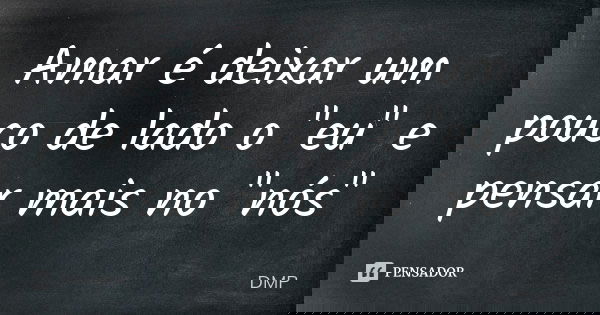 Amar é deixar um
pouco de lado o "eu" e
pensar mais no "nós"
DMP
PENSADOR